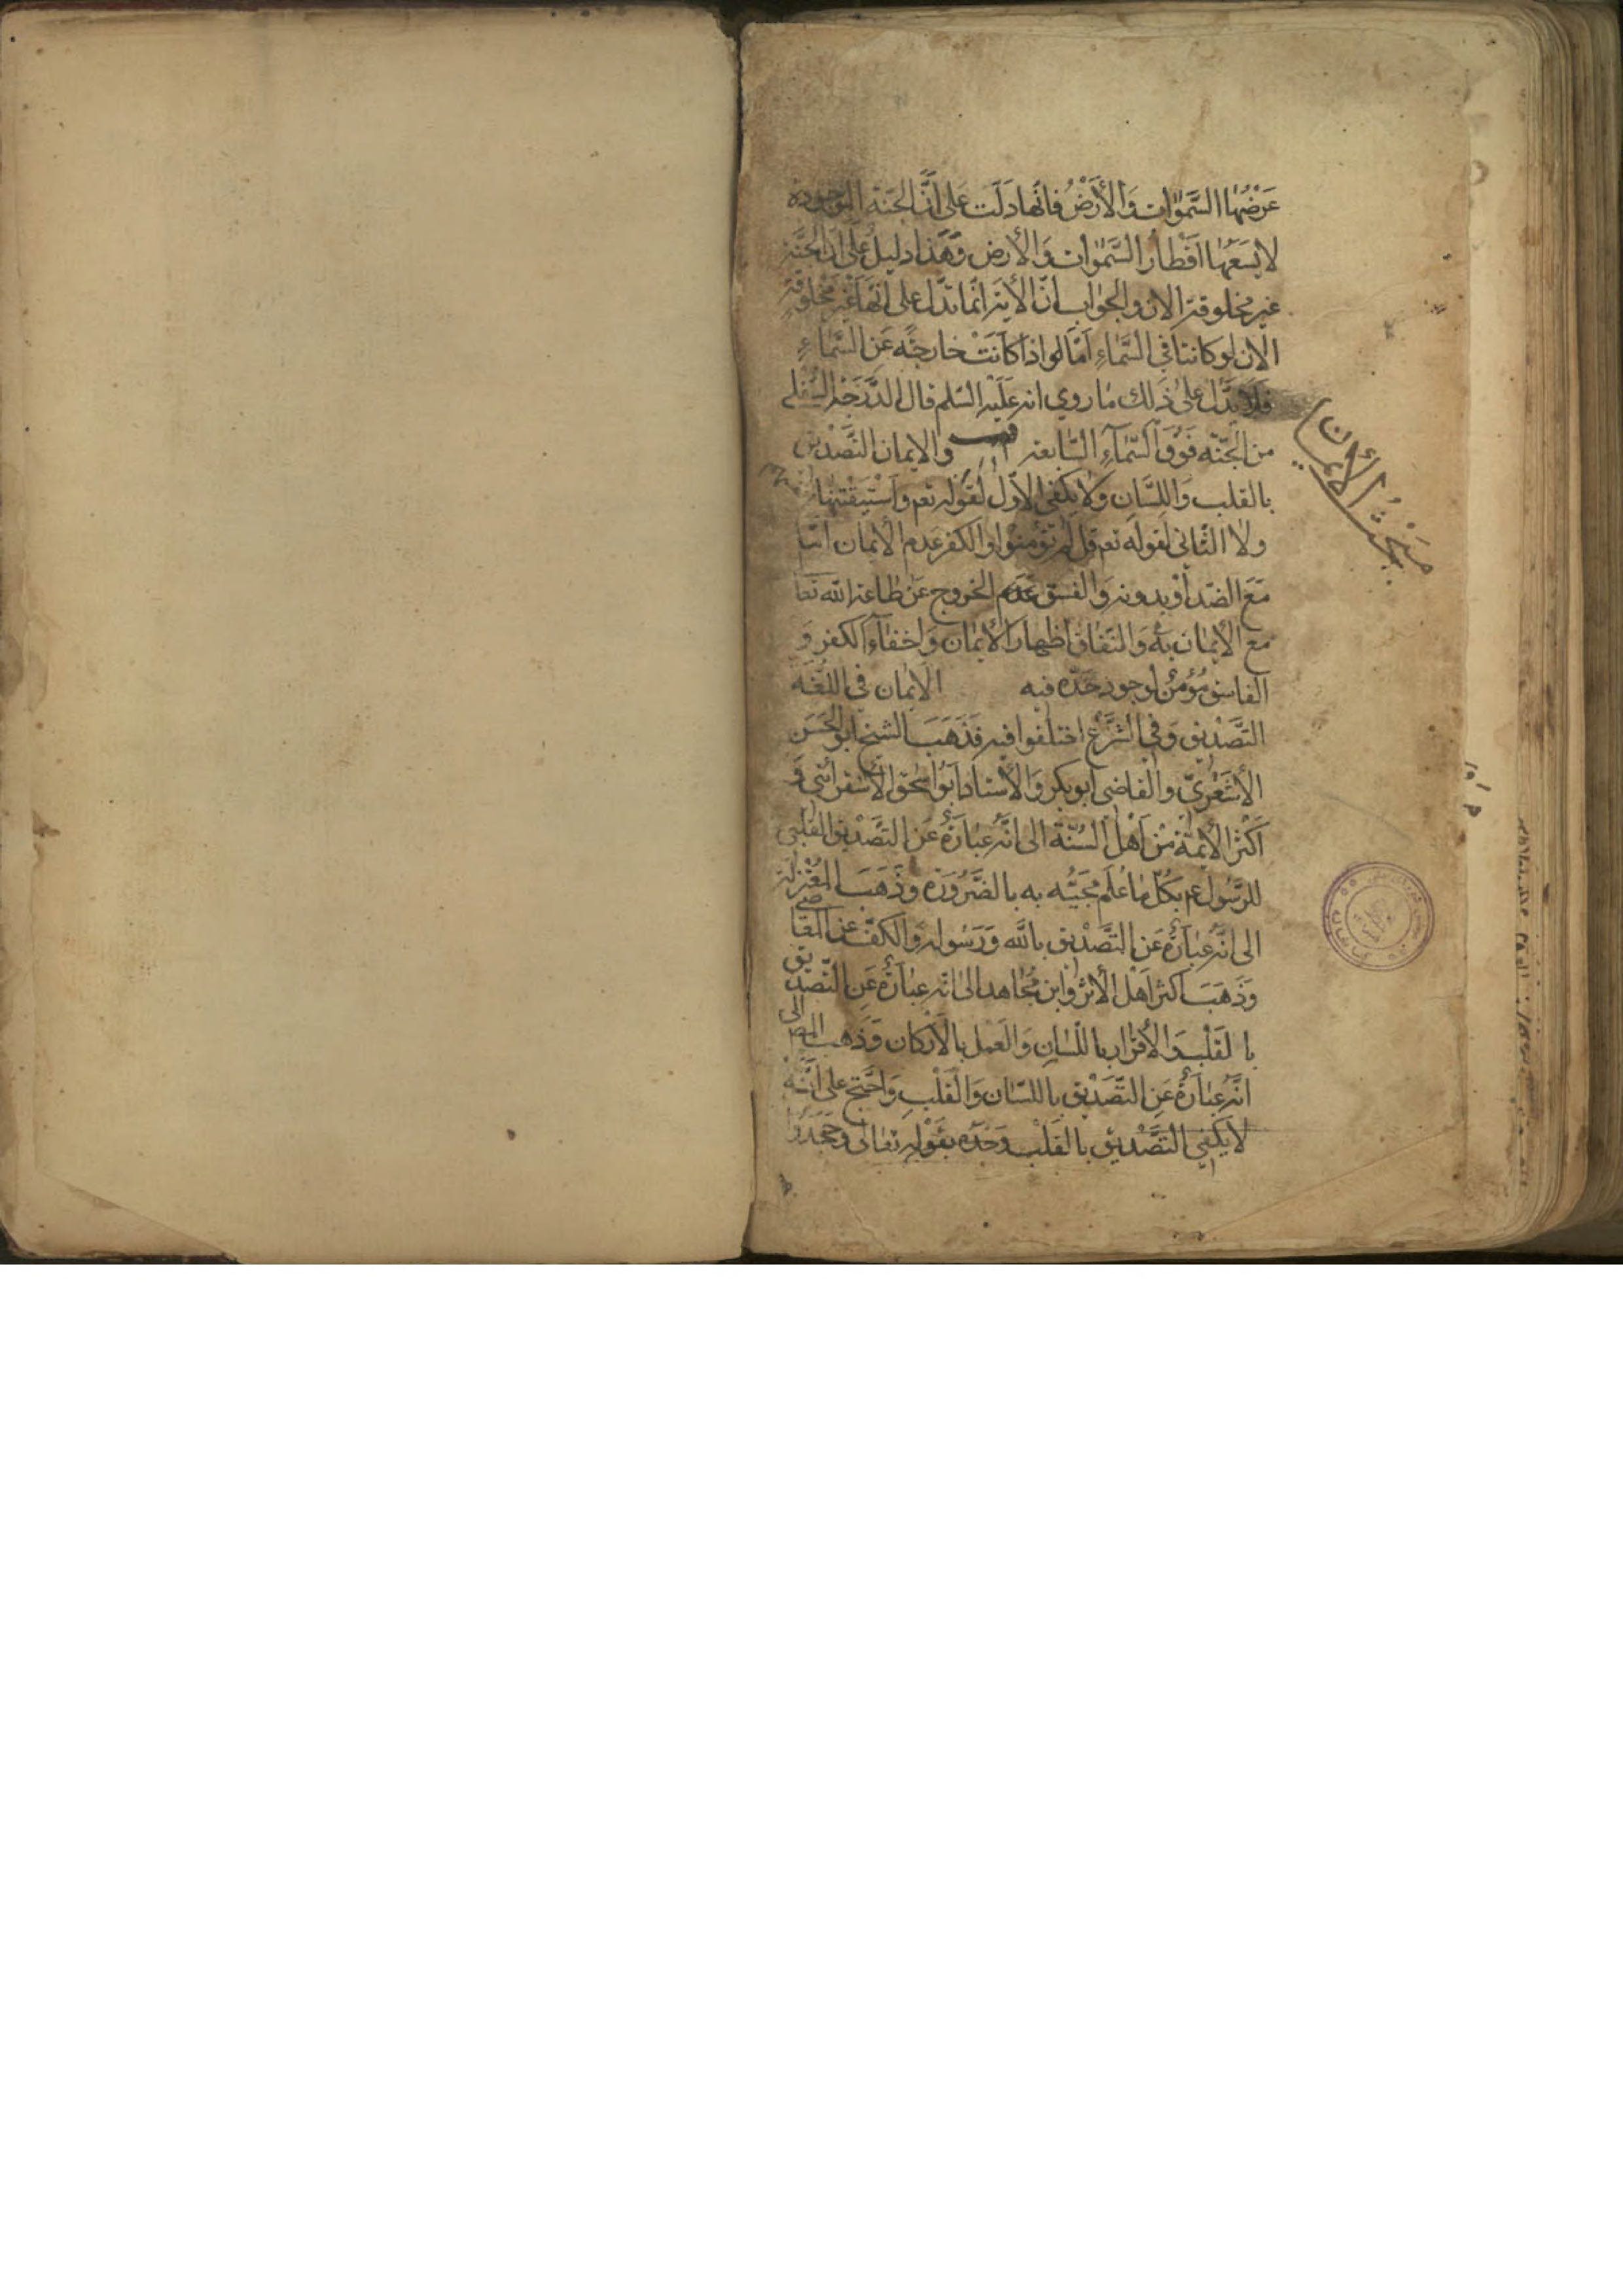 عَرْضُهَا السَّمٰوَات وَالْأَرْضُ فانّها دَلَّت عَلى أَنَّ الجَنّة الموجودة
لا يَسَعُهَا اقْطار السَّمٰوات وَالأرض وَهَذا دليلٌ عَلى انّ الجنَّة
غير مخلوقة الان والجواب انّ الأية انّما تدّل على انّها غير مخلوقةٍ
الان لو كانت في السَّماءِ امّا لو اذا كانَتْ خارجةً عَن السَّماءِ
فلا يدّل على ذَلك مَا روي انه عَلَيْه السّلم قال الدَّرَجَة السُّفلى
من الجنّة فَوْقَ السَّمآءِ السّابعة والايمان التَّصْديق
بالقلب وَاللّسَان وَلا يكفي الاوّل لقوله تعم وَاسْتَيقَنَتْهَا
ولا الثّاني لقوله تعم قل لم تؤمنوا والكفر عَدم الأيمان امّا
مَعَ الضد أوْ بدونه وَالفسق عَدَم الخروج عَنْ طاعة الله تعا
مع الأيمان به وَالنّفاق اظهار الأيمان وَاخفاء الكفر وَ
الفاسق مُؤمنٌ لوجود حَدّه فيه الأيمان في اللّغَة
التَّصْديق وَفي الشّرع اختلفوا فيه فَذَهَبَ الشيخ ابو الحَسَن
الأشْعَريّ والقاضي ابو بكر وَالأستاد ابُو اسحٰق الأسفرائني وَ
اكْثَر الأئمّة مِنْ اَهْل السّنّة الى انّه عِبَارَةٌ عَن التصْديق القلبي
للرّسُول عم بكلّ مَا عُلم مَجيئه به بالضَّرُورَة وذَهَبَ المُعْتزلة
الى انّه عبَارَةٌ عَن التَّصْديق بالله وَرَسُوله وَالكفّ عَن المعَا
صي
وَذَهَبَ اكثر اَهْل الأثر وَابن مُجاهد الى انّه عِبَارَةٌ عَن التّصْد
يق
با لقَلْب وَالأقرار باللّسَانِ وَالعَمل بالأركان وَذَهب المص
الى
انّه عِبَارَةٌ عَن التّصْديق باللسَان وَالْقَلْبِ وَاحْتج على انّه
لا يَكْفي التَّصْديق بالقَلْب وَحْدَه بقَوْله تعالى وجَحَدُوا
مَبْحَثُ الأيمان